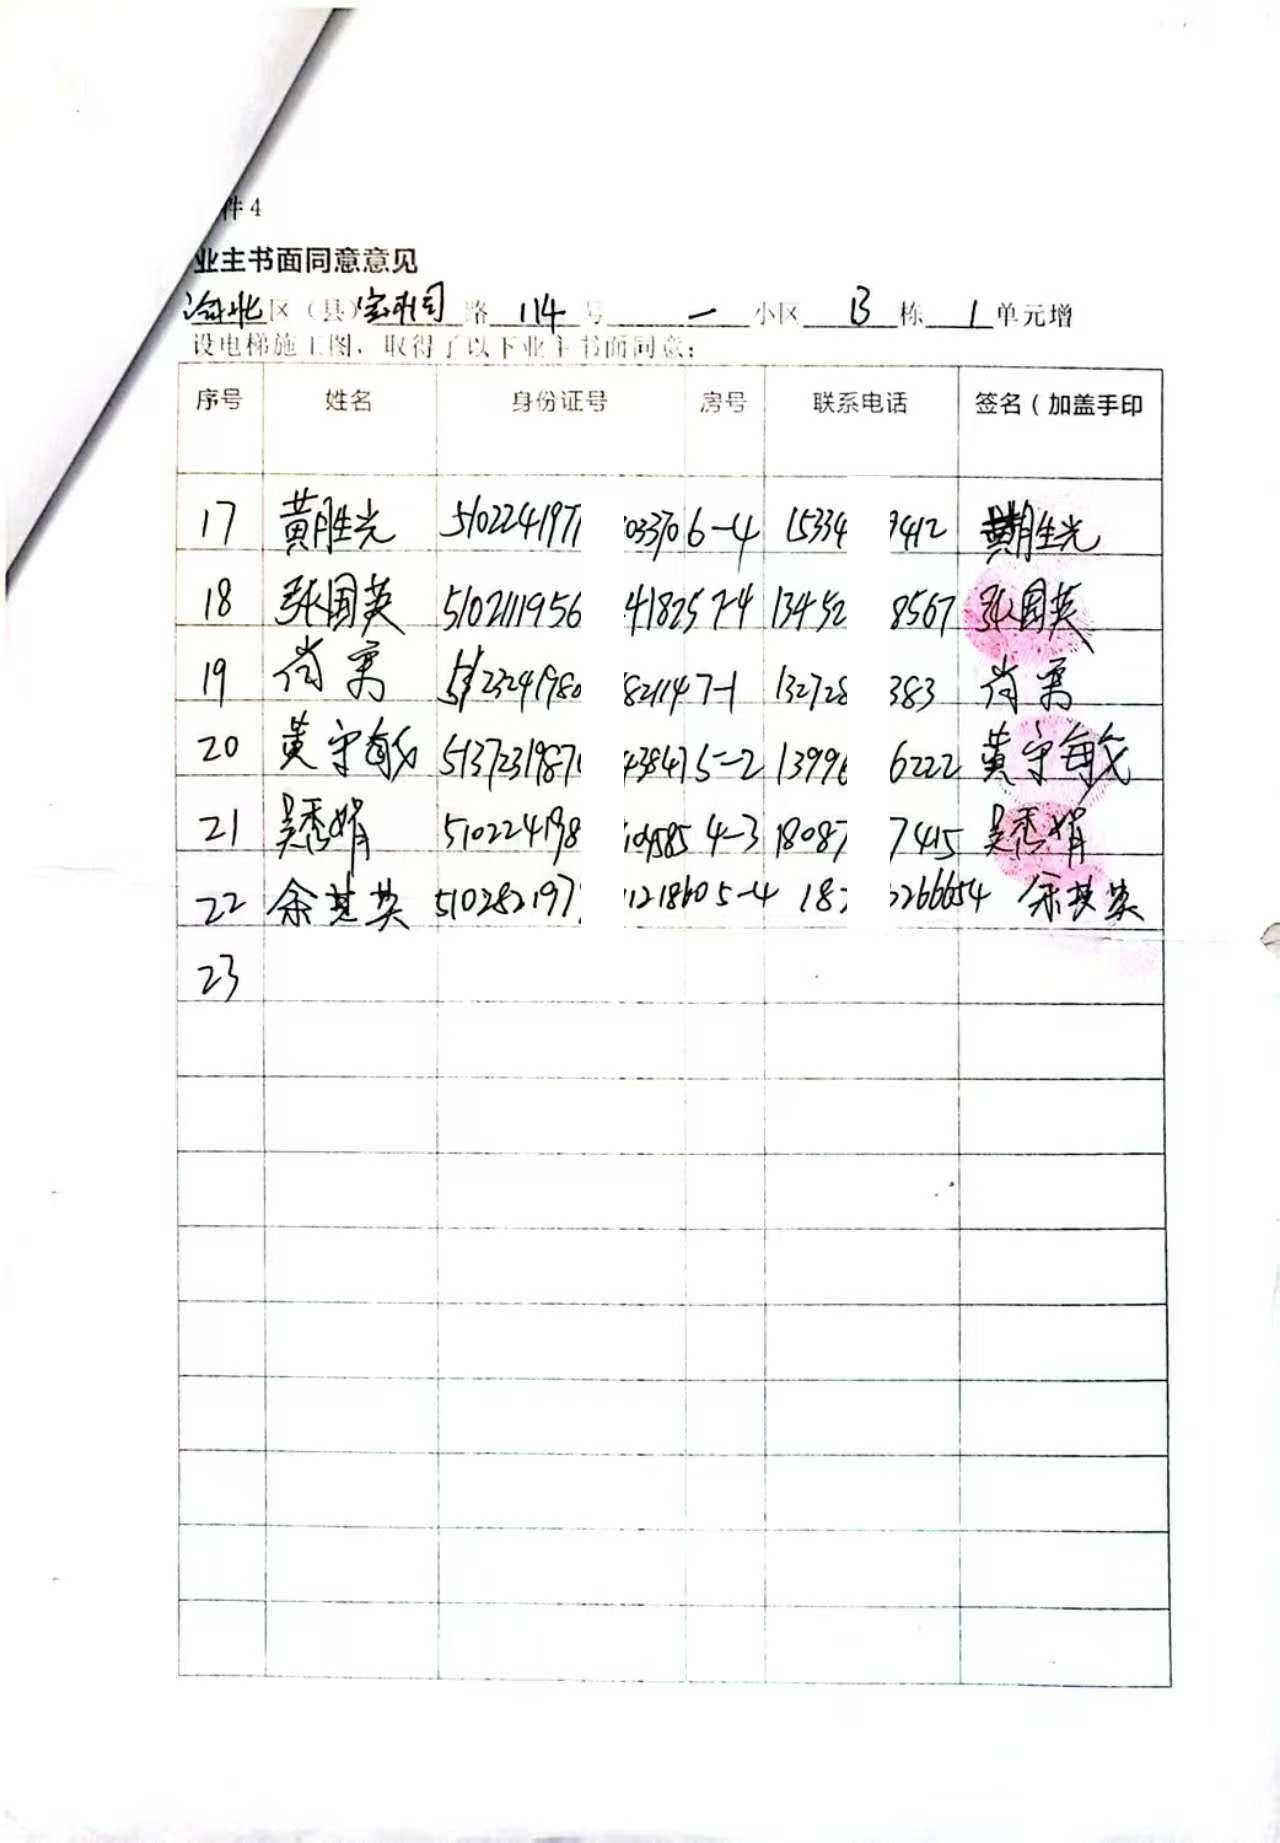 件4
业主书面同意意见
渝北区（县）宝圣司路 114 号 一 小区 B 栋 1 单元增
设电梯施工图，取得了以下业主书面同意：
序号 姓名 身份证号 房号 联系电话 签名（加盖手印
17 黄胜光 5102241971 03370 6-4 15334 9412 黄胜光
18 张国英 5102111956 41825 7-4 13452 8567 张国英
19 肖勇 5123241980 82114 7-1 132728 383 肖勇
20 黄守敏 513723198 43847 5-2 1399 6222 黄守敏
21 吴秀娟 510224198 109585 4-3 18087 7415 吴秀娟
22 余其英 510282197 1121860 5-4 18 266654 余其英
23